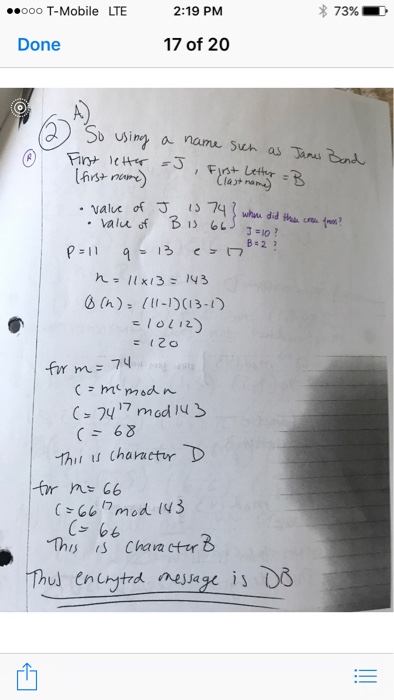 T-Mobile LTE 2:19 PM 73%
Done 17 of 20
A)
2 So using a name such as James Bond
First letter = J , First Letter = B
(first name) (last name)
• value of J is 74 } where did these come from?
• value of B is 66 J = 10 ?
B = 2 ?
P = 11 q = 13 e = 17
n = 11x13 = 143
Φ(n) = (11-1)(13-1)
= 10(12)
= 120
for m = 74
C = m^e mod n
C = 74^17 mod 143
C = 68
This is character D
for m = 66
C = 66^17 mod 143
C = 66
This is character B
Thus encryted message is DB